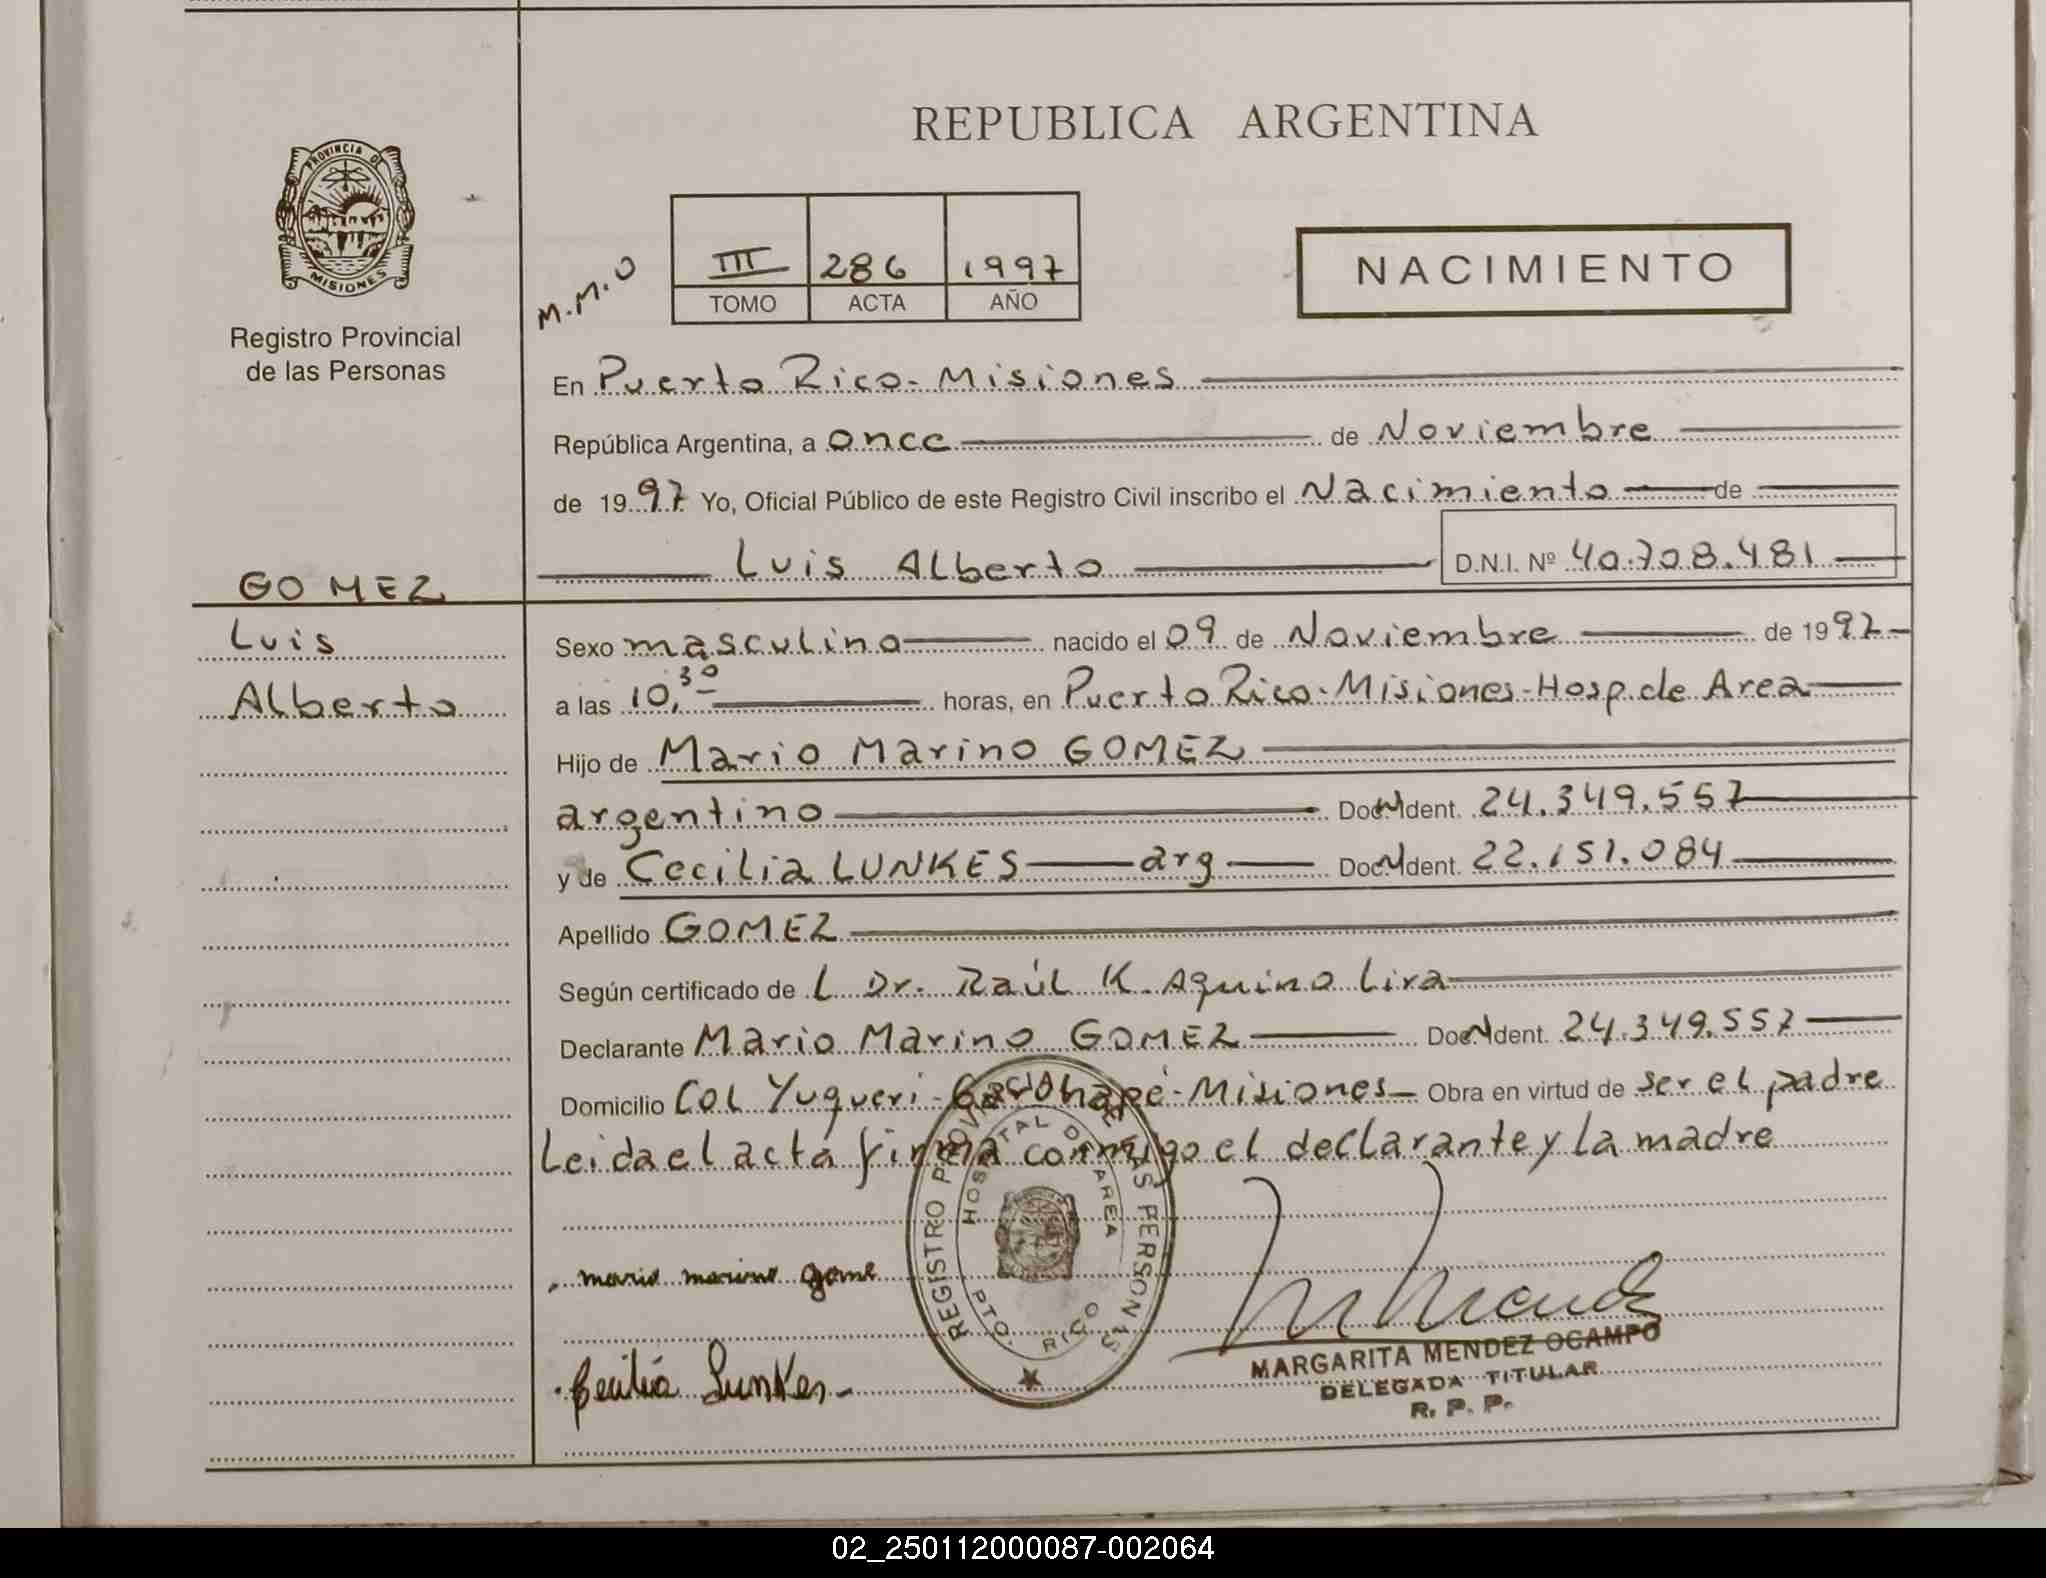 REPUBLICA ARGENTINA
PROVINCIA DE
MISIONES
Registro Provincial
de las Personas
M.M.O
III 286 1997
TOMO ACTA AÑO
NACIMIENTO
En Puerto Rico - Misiones
República Argentina, a once de Noviembre
de 1997 Yo, Oficial Público de este Registro Civil inscribo el Nacimiento de
Luis Alberto D.N.I. Nº 40.708.481
GOMEZ
Luis
Alberto
Sexo masculino nacido el 09 de Noviembre de 1997
a las 10,30 horas, en Puerto Rico - Misiones - Hosp. de Area
Hijo de Mario Marino GOMEZ
argentino Doc. N Ident. 24.349.557
y de Cecilia LUNKES arg Doc. N Ident. 22.151.084
Apellido GOMEZ
Según certificado de L Dr. Raúl K. Aquino Lira
Declarante Mario Marino GOMEZ Doc. N Ident. 24.349.557
Domicilio COL Yuqueri - Garuhapé - Misiones - Obra en virtud de ser el padre
Leida el acta firma conmigo el declarante y la madre
REGISTRO PROVINCIAL DE LAS PERSONAS
HOSPITAL DE AREA
PTO. RICO
mario marino gome
Cecilia Lunkes
MARGARITA MENDEZ OCAMPO
DELEGADA TITULAR
R. P. P.
02_250112000087-002064